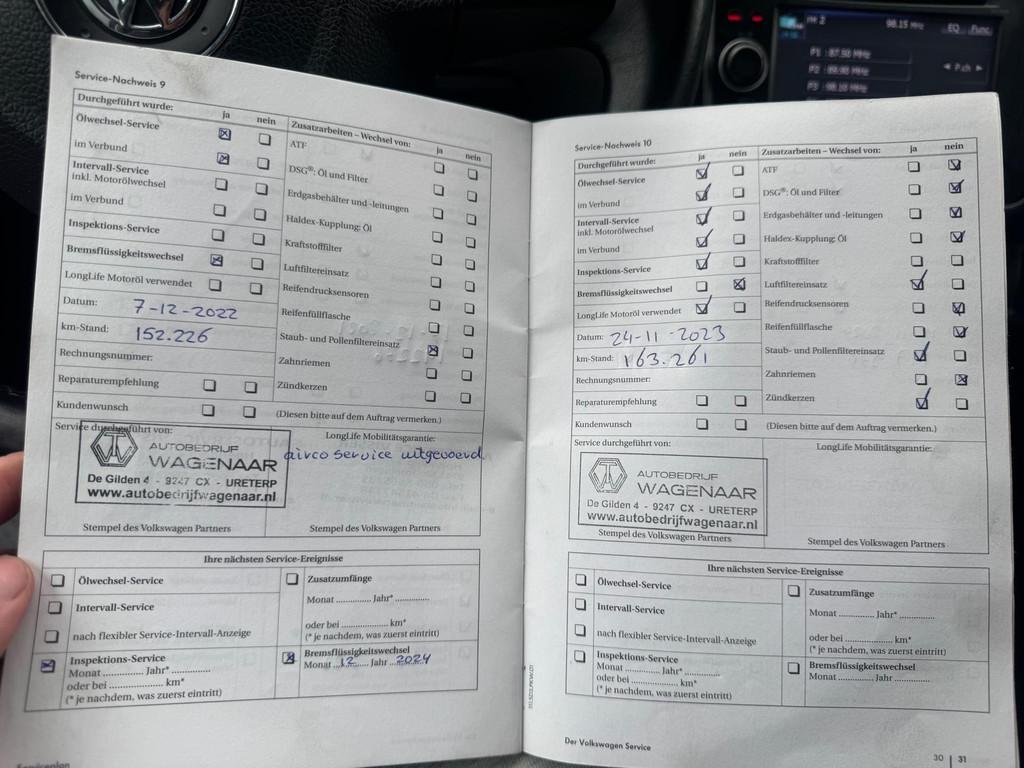 IM: 2
98.15 MHz
EQ
Func
P1 : 87.50 MHz
P2
MHz
P.ch
P3
MHz
Service-Nachweis 9
Durchgeführt wurde:
ja
nein
Ölwechsel-Service
im Verbund
Intervall-Service
inkl. Motorölwechsel
im Verbund
Inspektions-Service
Bremsflüssigkeitswechsel
LongLife Motoröl verwendet
Datum: 7-12-2022
km-Stand: 152.226
Rechnungsnummer:
Reparaturempfehlung
Kundenwunsch
Zusatzarbeiten – Wechsel von:
ja
nein
ATF
DSG®: Öl und Filter
Erdgasbehälter und -leitungen
Haldex-Kupplung: Öl
Kraftstofffilter
Luftfiltereinsatz
Reifendrucksensoren
Reifenfüllflasche
Staub- und Pollenfiltereinsatz
Zahnriemen
Zündkerzen
(Diesen bitte auf dem Auftrag vermerken.)
Service durchgeführt von:
AUTOBEDRIJF
WAGENAAR
De Gilden 4 - 9247 CX - URETERP
www.autobedrijfwagenaar.nl
Stempel des Volkswagen Partners
LongLife Mobilitätsgarantie:
airco service uitgevoerd
Stempel des Volkswagen Partners
Ihre nächsten Service-Ereignisse
Ölwechsel-Service
Intervall-Service
nach flexibler Service-Intervall-Anzeige
Inspektions-Service
Monat ............ Jahr* ...............
oder bei ...................... km*
(* je nachdem, was zuerst eintritt)
Zusatzumfänge
Monat ............ Jahr* ..............
oder bei ...................... km*
(* je nachdem, was zuerst eintritt)
Bremsflüssigkeitswechsel
Monat 12 Jahr 2024
Serviceplan
Service-Nachweis 10
Durchgeführt wurde:
ja
nein
Ölwechsel-Service
im Verbund
Intervall-Service
inkl. Motorölwechsel
im Verbund
Inspektions-Service
Bremsflüssigkeitswechsel
LongLife Motoröl verwendet
Datum: 24-11-2023
km-Stand: 163.261
Rechnungsnummer:
Reparaturempfehlung
Kundenwunsch
Zusatzarbeiten – Wechsel von:
ja
nein
ATF
DSG®: Öl und Filter
Erdgasbehälter und -leitungen
Haldex-Kupplung: Öl
Kraftstofffilter
Luftfiltereinsatz
Reifendrucksensoren
Reifenfüllflasche
Staub- und Pollenfiltereinsatz
Zahnriemen
Zündkerzen
(Diesen bitte auf dem Auftrag vermerken.)
Service durchgeführt von:
AUTOBEDRIJF
WAGENAAR
De Gilden 4 - 9247 CX - URETERP
www.autobedrijfwagenaar.nl
Stempel des Volkswagen Partners
LongLife Mobilitätsgarantie:
Stempel des Volkswagen Partners
Ihre nächsten Service-Ereignisse
Ölwechsel-Service
Intervall-Service
nach flexibler Service-Intervall-Anzeige
Inspektions-Service
Monat ............ Jahr* ..............
oder bei ...................... km*
(* je nachdem, was zuerst eintritt)
Zusatzumfänge
Monat ............ Jahr* ..............
oder bei ...................... km*
(* je nachdem, was zuerst eintritt)
Bremsflüssigkeitswechsel
Monat ............ Jahr ..............
Der Volkswagen Service
30 | 31